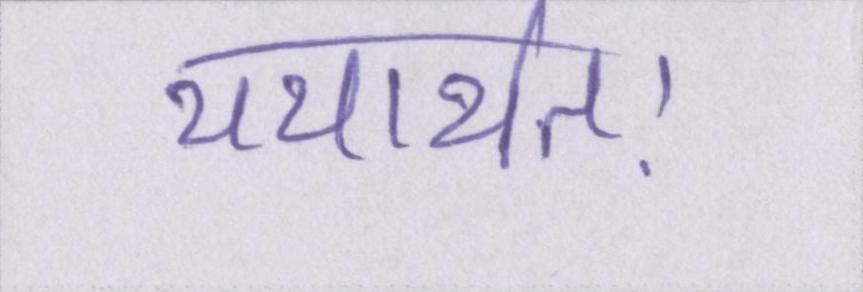 यथार्थत!